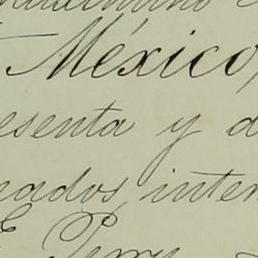 México,
esenta y d
eados, inten
E. Perry